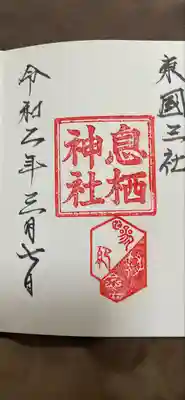 東国三社
息栖
神社
令和二年三月七日